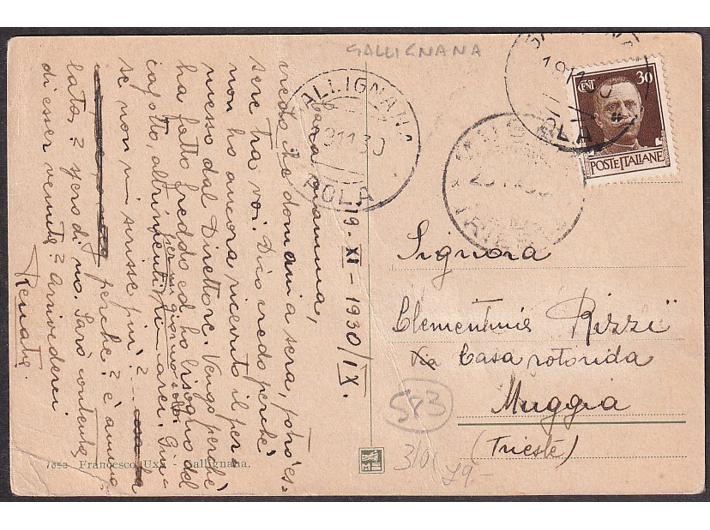 GALLIGNANA
GALLIGNANA
POLA
CENT 30
POSTE ITALIANE
POLA
19. XI - 1930/IX.
Cara mamma,
credo che domani a sera, potrò es-
sere tra voi. Dico credo perchè
non ho ancora ricevuto il per-
messo dal Direttore. Vengo perchè
ha fatto freddo ed ho bisogno del
capotto, altrimenti
se non mi scrisse più?
perchè? è amma-
lata? spero di no. Sarò contenta
di esser venuta? Arrivederci
Renata.
Signora
Clementinis Rizzi
Via Casa rotonda
Muggia
(Trieste)
583
310
29.-
7852 Francesco Uxa - Gallignana.